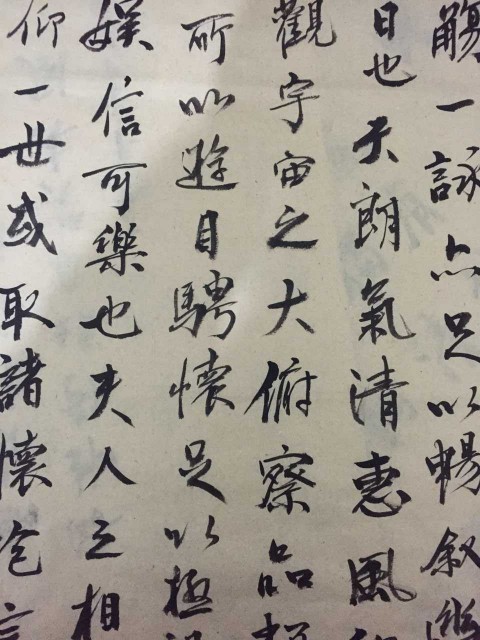 觴一詠亦足以暢叙幽
日也天朗氣清惠風和
觀宇宙之大俯察品類
所以遊目騁懷足以極
娛信可樂也夫人之相
仰一世或取諸懷抱言